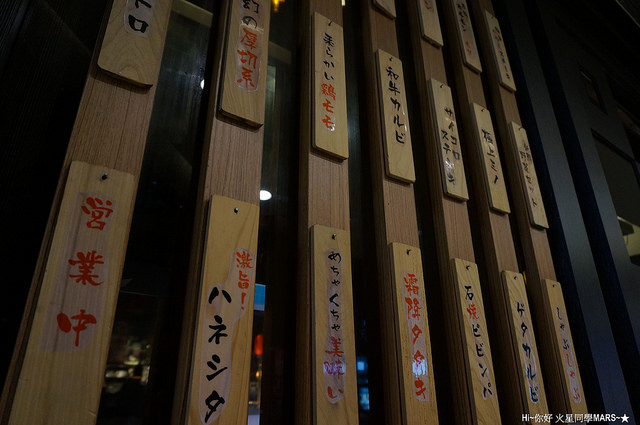 トロ
幻の厚切系
柔らかい鶏モモ
和牛カルビ
サイコロステーキ
極上
営業中
激旨!
ハネシタ
めちゃくちゃ美味い
霜降タタキ
石焼ビビンバ
ゲタカルビ
しゃぶしゃぶ
Hi~你好 火星同學MARS~★